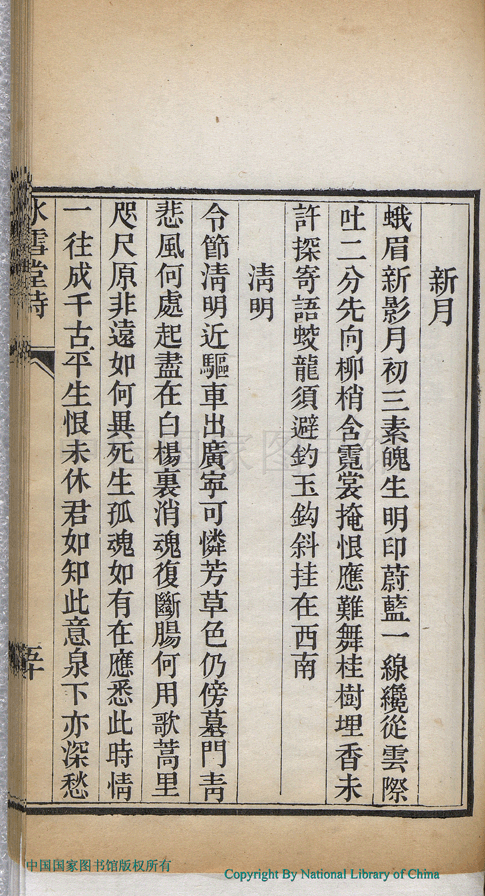 新月
蛾眉新影月初三素魄生明印蔚藍一線纔從雲際
吐二分先向柳梢含霓裳掩恨應難舞桂樹埋香未
許探寄語蛟龍須避釣玉鈎斜挂在西南
淸明
令節淸明近驅車出廣寧可憐芳草色仍傍墓門靑
悲風何處起盡在白楊裏消魂復斷腸何用歌蒿里
咫尺原非遠如何異死生孤魂如有在應悉此時情
一往成千古平生恨未休君如知此意泉下亦深愁
冰雪堂詩
中国国家图书馆
中国国家图书馆版权所有
Copyright By National Library of China